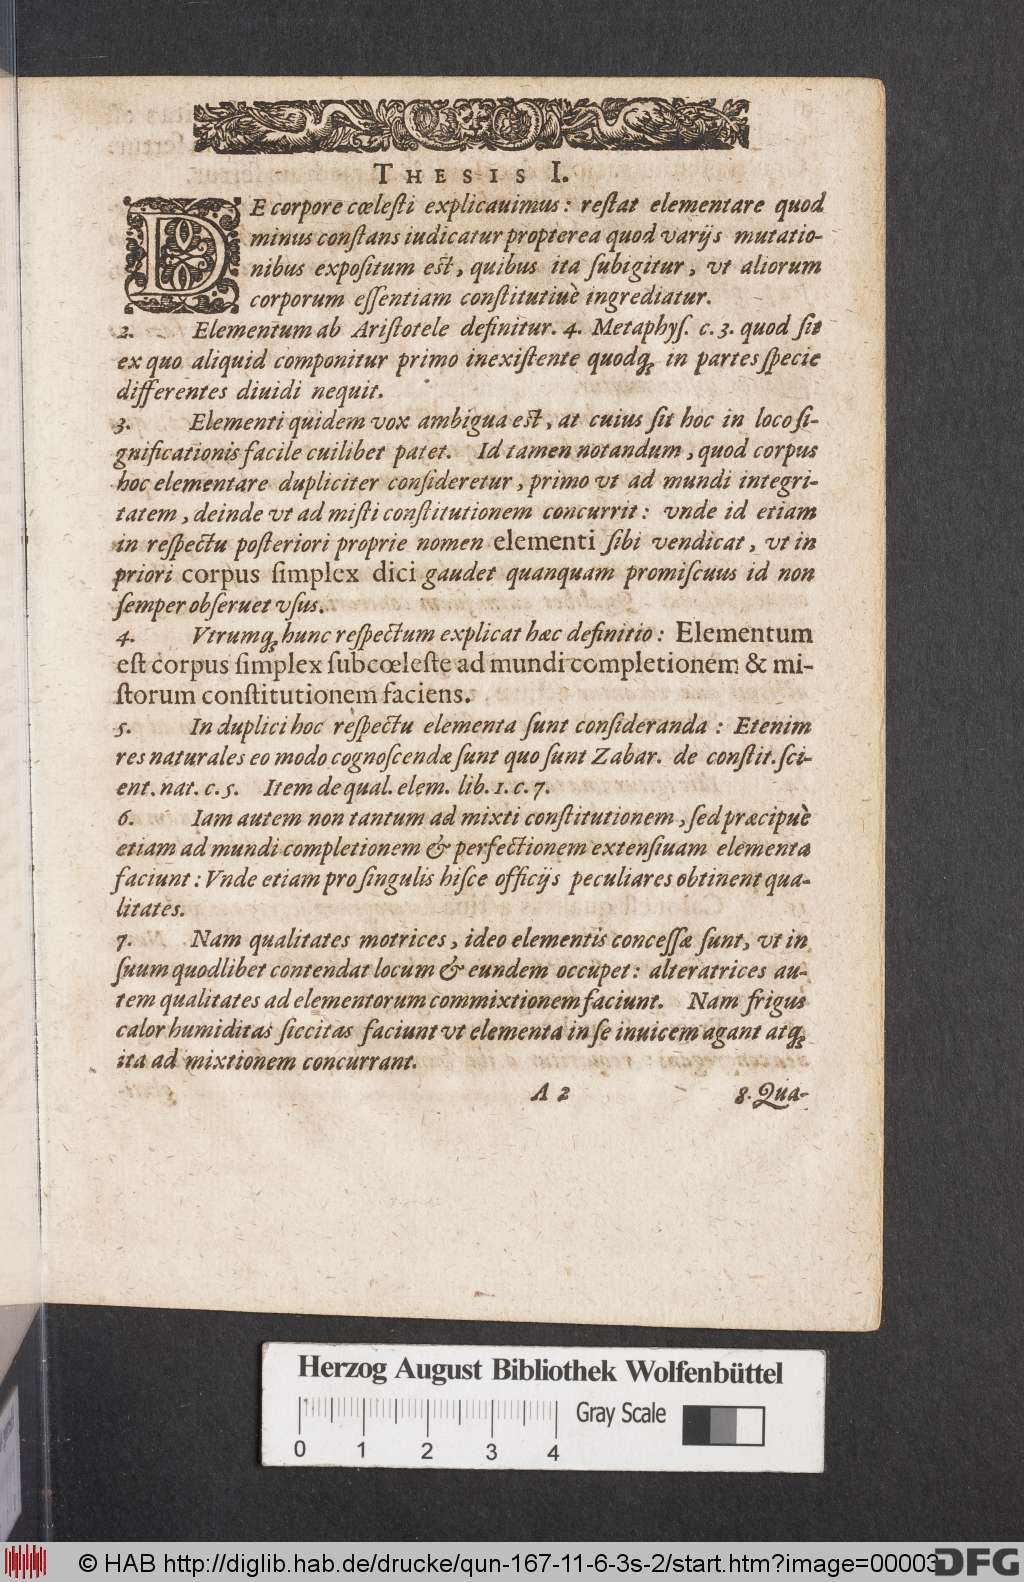 THESIS I.
DE corpore cœlesti explicauimus: restat elementare quod
minus constans iudicatur propterea quod varijs mutatio-
nibus expositum est, quibus ita subigitur, vt aliorum
corporum essentiam constitutiuè ingrediatur.
2. Elementum ab Aristotele definitur. 4. Metaphys. c. 3. quod sit
ex quo aliquid componitur primo inexistente quodq; in partes specie
differentes diuidi nequit.
3. Elementi quidem vox ambigua est, at cuius sit hoc in loco si-
gnificationis facile cuilibet patet. Id tamen notandum, quod corpus
hoc elementare dupliciter consideretur, primo vt ad mundi integri-
tatem, deinde vt ad misti constitutionem concurrit: vnde id etiam
in respectu posteriori proprie nomen elementi sibi vendicat, vt in
priori corpus simplex dici gaudet quanquam promiscuus id non
semper obseruet vsus.
4. Vtrumq; hunc respectum explicat hæc definitio: Elementum
est corpus simplex subcœleste ad mundi completionem & mi-
storum constitutionem faciens.
5. In duplici hoc respectu elementa sunt consideranda: Etenim
res naturales eo modo cognoscendæ sunt quo sunt Zabar. de constit. sci-
ent. nat. c. 5. Item de qual. elem. lib. 1. c. 7.
6. Iam autem non tantum ad mixti constitutionem, sed præcipuè
etiam ad mundi completionem & perfectionem extensiuam elementa
faciunt: Vnde etiam pro singulis hisce officijs peculiares obtinent qua-
litates.
7. Nam qualitates motrices, ideo elementis concessæ sunt, vt in
suum quodlibet contendat locum & eundem occupet: alteratrices au-
tem qualitates ad elementorum commixtionem faciunt. Nam frigus
calor humiditas siccitas faciunt vt elementa in se inuicem agant atq;
ita ad mixtionem concurrant.
A 2 8. Qua-
Herzog August Bibliothek Wolfenbüttel
Gray Scale
0 1 2 3 4
© HAB http://diglib.hab.de/drucke/qun-167-11-6-3s-2/start.htm?image=00003
DFG